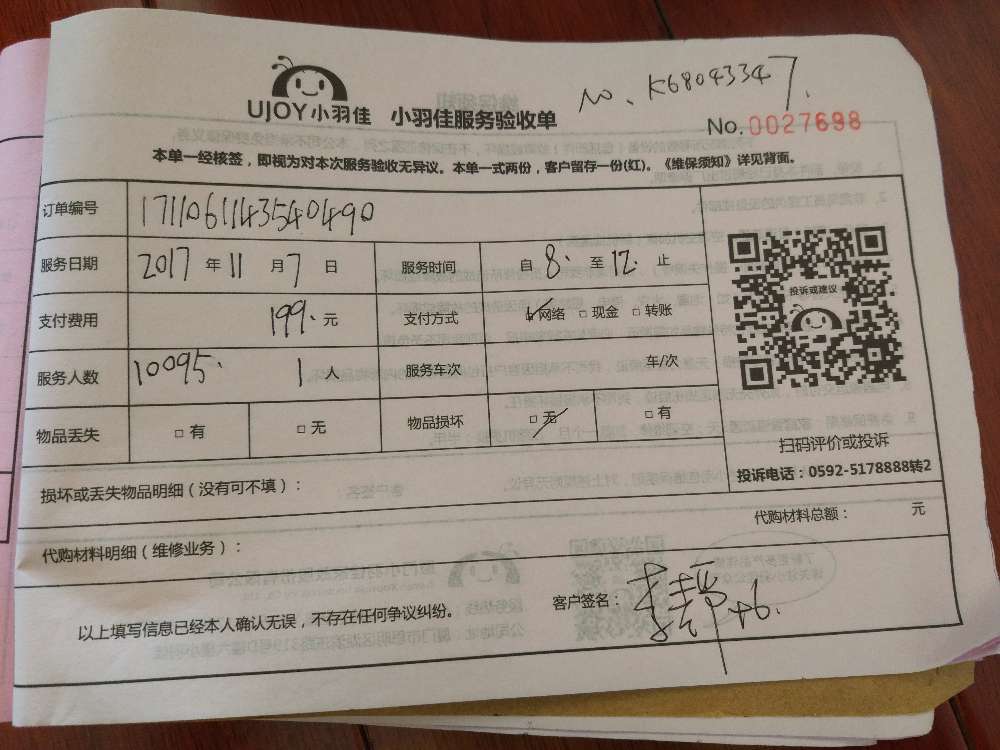 No. K68043347
UJOY小羽佳 小羽佳服务验收单
No.0027698
本单一经核签，即视为对本次服务验收无异议。本单一式两份，客户留存一份(红)。《维保须知》详见背面。
订单编号 171106114354 0490
服务日期 2017 年 11 月 7 日 服务时间 自 8. 至 12. 止
支付费用 199. 元 支付方式 ☑网络 □现金 □转账
服务人数 10095. 1 人 服务车次 车/次
物品丢失 □有 □无 物品损坏 □无 □有
投诉或建议
扫码评价或投诉
投诉电话：0592-5178888转2
损坏或丢失物品明细（没有可不填）：
代购材料总额： 元
代购材料明细（维修业务）：
以上填写信息已经本人确认无误，不存在任何争议纠纷。
客户签名：